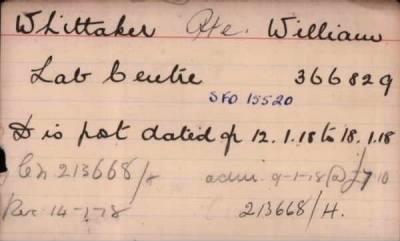 Whittaker Pte. William
Lab Centre 366829
SFO 15520
D is post dated fr 12.1.18 to 18.1.18
213668/ adm. 9-1-18 £7/10
Rec 14-1-18 213668/H.